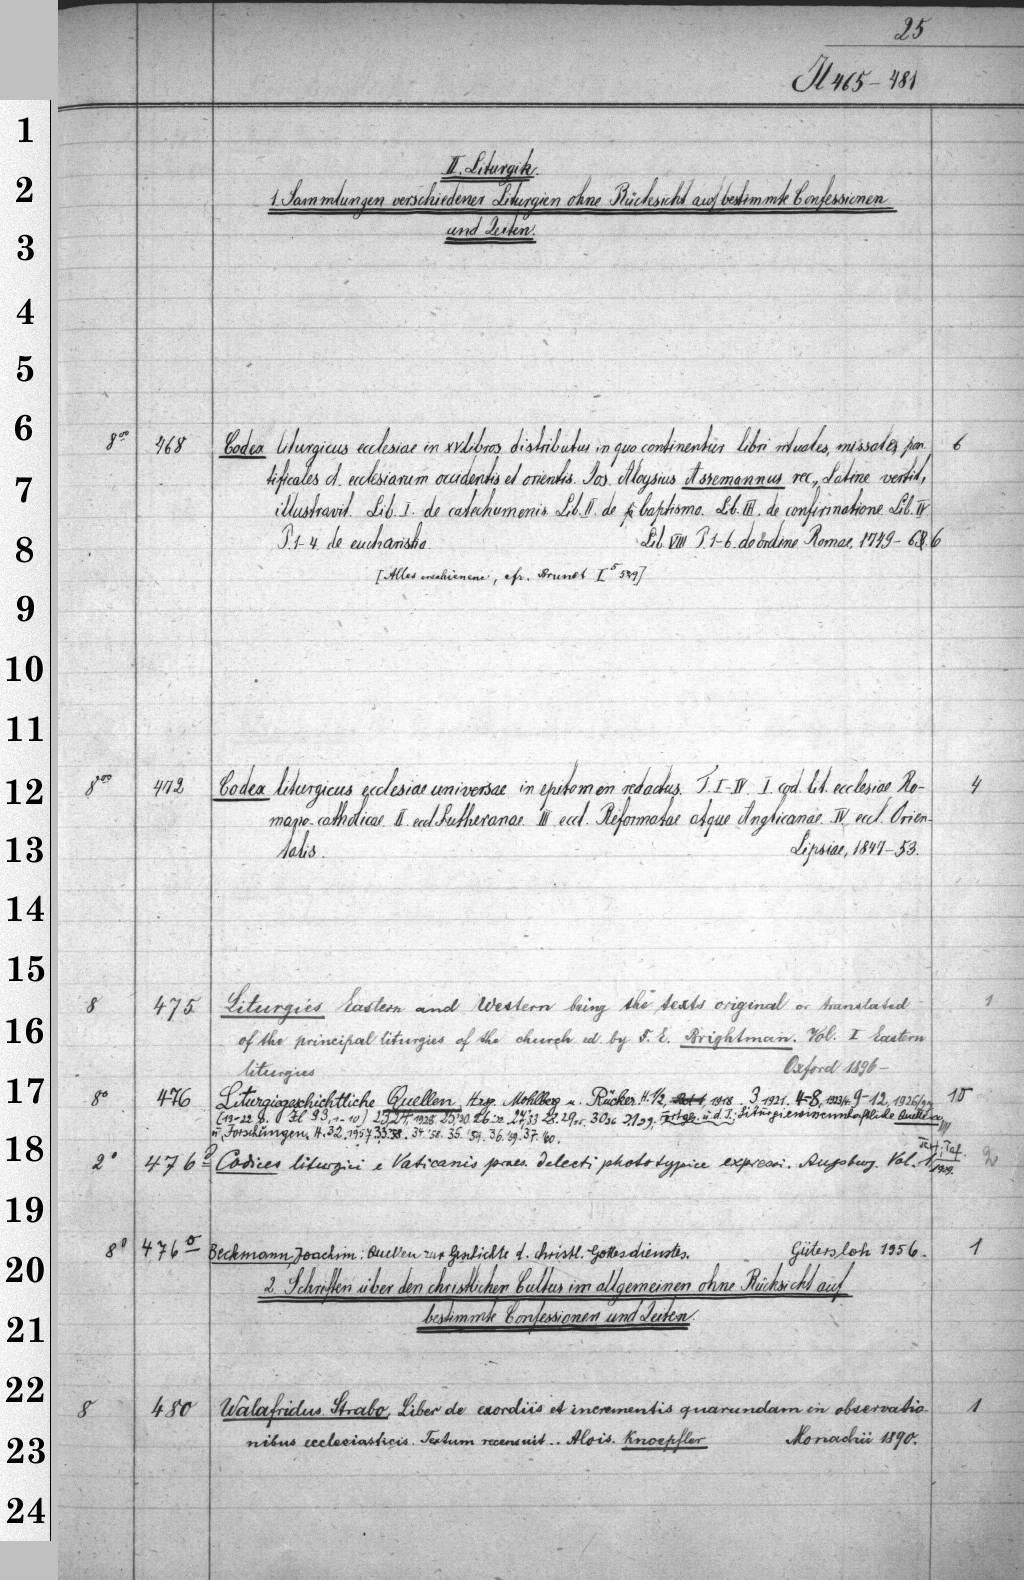 25
Il 465-481
1
II. Liturgik.
2
1. Sammlungen verschiedener Liturgien ohne Rücksicht auf bestimmte Confessionen
und Zeiten.
3
4
5
6
8vo 468 Codex liturgicus ecclesiae in XV libros distributus in quo continentur libri rituales, missales, pon- 6
tificales ecclesiarum occidentis et orientis. Jos. Aloysius Assemannus rec., Latine vertit,
7
illustravit. Lib. I. de catechumenis Lib. II. de baptismo. Lib. III. de confirmatione Lib. IV
P. 1-4. de eucharistia Lib. VIII P. 1-6. de ordine Romae, 1749-66
8
[Alles erschienene, cfr. Brunet I 5
9
10
11
12
8vo 472 Codex liturgicus ecclesiae universae in epitomen redactus. T. I-IV. I. cod. lit. ecclesiae Ro- 4
mano-catholicae II. eccl. Lutheranae III eccl. Reformatae atque Anglicanae. IV. eccl. Orien-
13
talis. Lipsiae, 1847-53.
14
15
8 475 Liturgies Eastern and Western being the texts original or translated 1
16
of the principal liturgies of the church ed. by F. E. Brightman. Vol. I Eastern
liturgies Oxford 1896-
17
8° 476 Liturgiegeschichtliche Quellen, Hrg. Mohlberg u. Rücker. H. 1/2, 3 1921. 4-8, 9-12,
u. Forschungen, H. 32. 1957. 33. '58. 34. '58. 35. '59. 36. '59. 37. '60.
18
2° 476a Codices liturgici e Vaticanis praes. delecti phototypice expressi. Augsburg. Vol. 1 Text, Taf. 1929. 2
19
8° 476 Beckmann, Joachim: Quellen zur Geschichte d. christl. Gottesdienstes. Gütersloh 1956. 1
20
2. Schriften über den christlichen Cultus im allgemeinen ohne Rücksicht auf
bestimmte Confessionen und Zeiten.
21
22
8 480 Walafridus Strabo, Liber de exordiis et incrementis quarundam in observatio- 1
23
nibus ecclesiasticis. Textum recensuit .. Alois. Knoepfler Monachii 1890.
24